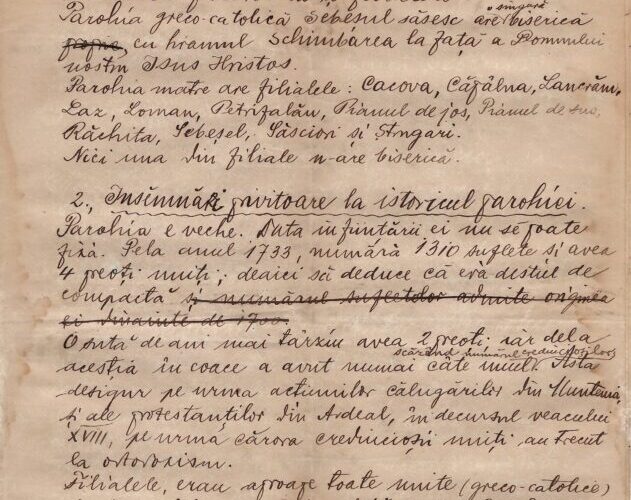 Parohia greco-catolică Sebeșul săsesc are o singură biserică
proprie, cu hramul Schimbarea la față a Domnului
nostru Isus Hristos.
Parohia matre are filialele: Cacova, Căpâlna, Lancrăm,
Laz, Loman, Petrifalău, Pianul de jos, Pianul de sus,
Răchita, Sebeșel, Săsciori și Sungari.
Nici una din filiale n-are biserică.
2., Însemnări privitoare la istoricul parohiei.
Parohia e veche. Data înființării ei nu se poate
fixá. Pela anul 1733, numără 1310 suflete și avea
4 preoți uniți; deaici să deduce că erá destul de
compactă și numărul sufletelor admite originea
ei dinainte de 1700.
O sută de ani mai târziu avea 2 preoți; iár dela
scăzând numărul credincioșilor
aceștia în coace a avut numai câte unul. Asta
desigur pe urma acțiunilor călugărilor din Muntenia,
și ale protestanților din Ardeal, în decursul veacului
XVIII, pe urmă cărora credincioși uniți au trecut
la ortodoxism.
Filialele, erau aproape toate unite (greco-catolice)